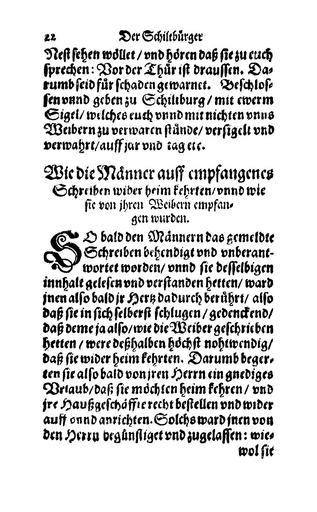 22 Der Schiltbürger
Nest sehen wöllet / vnd hören daß sie zu euch
sprechen: Vor der Thür ist draussen. Da-
rumb seid für schaden gewarnet. Beschlos-
sen vnnd geben zu Schiltburg / mit ewerm
Sigel / welches euch vnnd mit nichten vnns
Weibern zu verwaren stünde / versigelt vnd
verwahrt / auff jar vnd tag etc.
Wie die Männer auff empfangenes
Schreiben wider heim kehrten / vnnd wie
sie von jhren Weibern empfan-
gen wurden.
SO bald den Männern das gemeldte
Schreiben behendigt vnd vberant-
wortet worden / vnnd sie desselbigen
innhalt gelesen vnd verstanden hetten / ward
jnen also bald jr Hertz dadurch berührt / also
daß sie in sich selberst schlugen / gedenckend /
daß deme ja also / wie die Weiber geschrieben
hetten / were deßhalben höchst nohtwendig /
daß sie wider heim kehrten. Darumb beger-
ten sie also bald von jren Herrn ein gnediges
Vrlaub / daß sie möchten heim kehren / vnd
jre Haußgeschäffte recht bestellen vnd wider
auff vnnd anrichten. Solchs ward jnen von
den Herrn begünstiget vnd zugelassen: wie-
wol sie